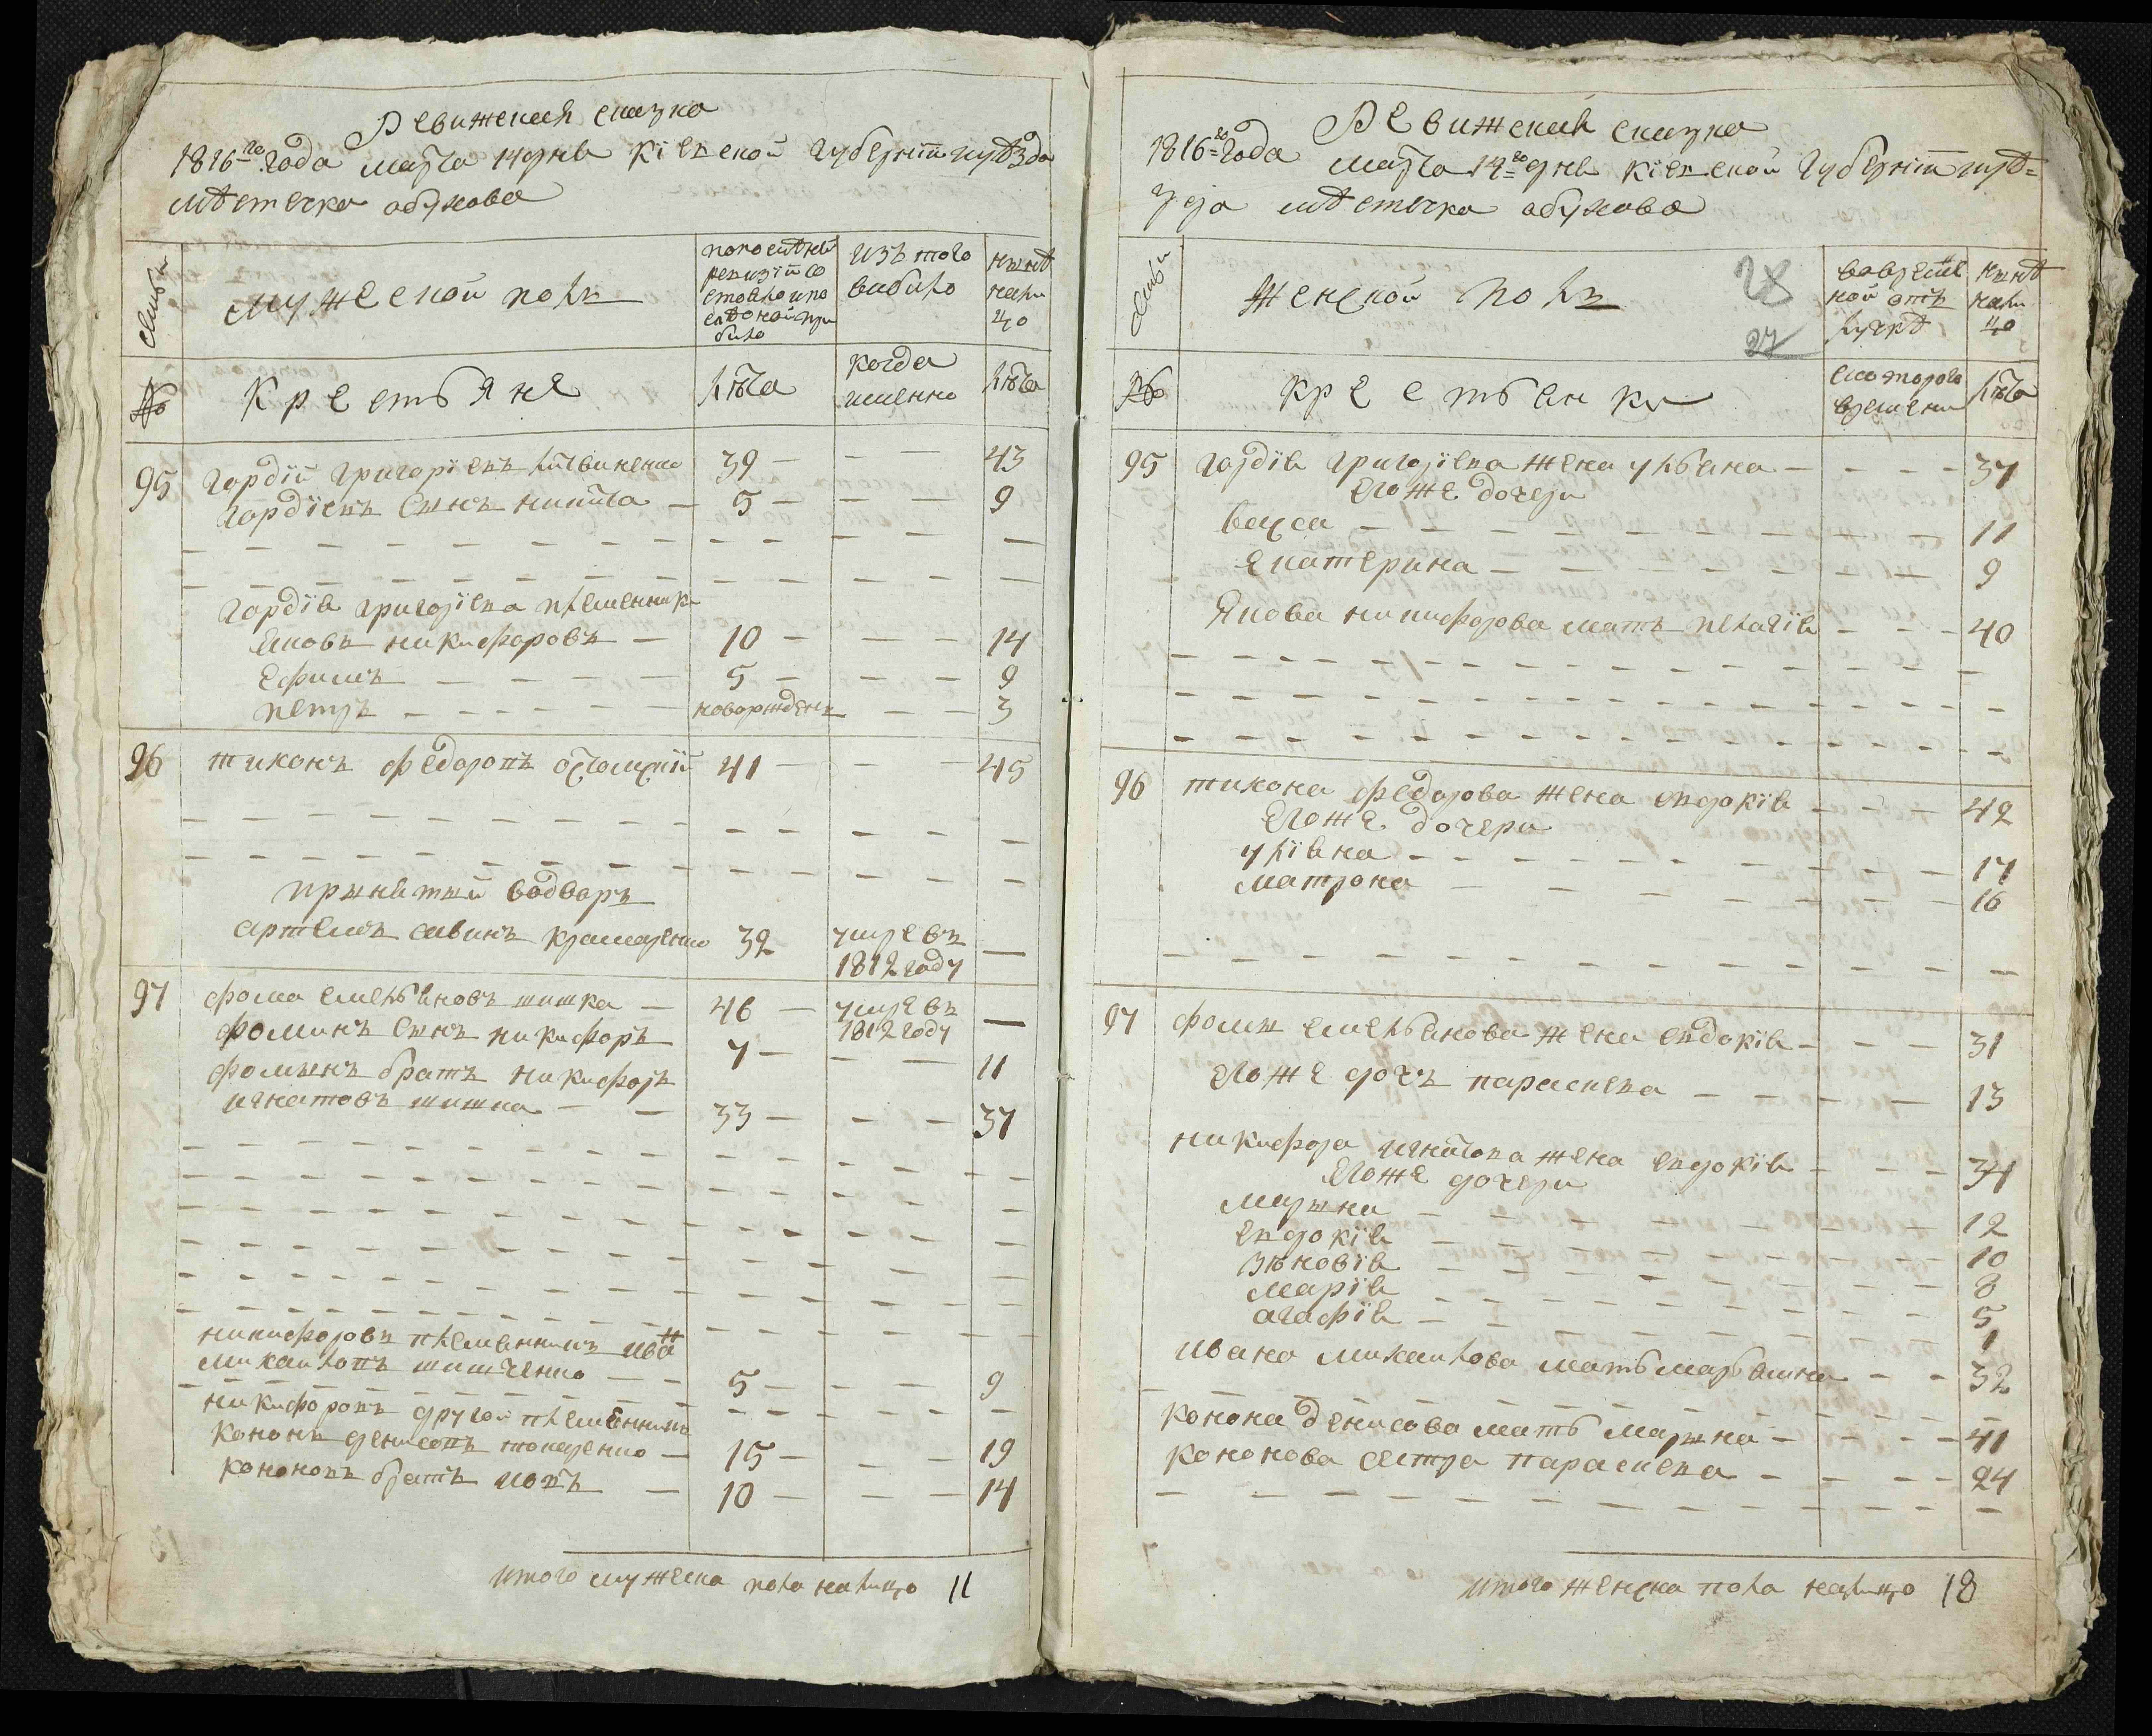 Ревижская сказка
1816го года марта 14 дня Кіевской губерніи и уѣзда
мѣстечка обухова
Семьи
мужеской полъ
по послѣдней ревизіи состояло и послѣ оной прибило
изъ того вибило
нынѣ налицо
№
Крестьяне
лѣта
когда именно
лѣта
95 Гордій Григоріевъ Литвиненко 39 — — — 43
Гордіевъ сынъ никита — 5 — — — 9
Гордія григоріева племенники
яковъ никифоровъ — 10 — — — 14
Ефимъ — 5 — — — 9
петръ — новорожденъ — — 3
96 тихонъ федоровъ 41 — — — 45
принятый водворъ
артемъ савинъ крамаренко 32 умре въ 1812 году —
97 фома емельяновъ шишка — 46 — умре въ 1812 году —
фоминъ сынъ никифоръ 7 — — — 11
фоминъ братъ никифоръ
игнатовъ шишка — 33 — — — 37
никифоровъ племенникъ иванъ
михаиловъ шишченко — — 5 — — — 9
никифоровъ другой племенникъ
кононъ денисовъ — 15 — — — 19
кононовъ братъ — 10 — — — 14
итого мужеска пола налицо 11
Ревижская сказка
1816го года марта 14го дня Кіевской губерніи и уѣ=
зда мѣстечка обухова
28
27
Семьи
женской полъ
во временной отлучкѣ
нынѣ налицо
№
крестьянки
с котораго времени
лѣта
95 гордія григоріева жена ульяна — — — 37
его же дочери
васса — 11
екатерина — 9
Якова никифорова мать пелагія — — — 40
96 тихона федорова жена евдокія — — — 42
его же дочери
уліяна — 17
матрона — 16
97 фомы емельянова жена евдокія — — — 31
его же дочь параскева — 13
никифора игнатова жена евдокія — — — 34
его же дочери
марына — 12
евдокія — 10
зѣновія — 8
марія — 5
агафія — 1
ивана михаилова мать марьяна — — 32
конона денисова мать марына — — — 41
кононова сестра параскева — — — 24
итого женска пола налицо 18